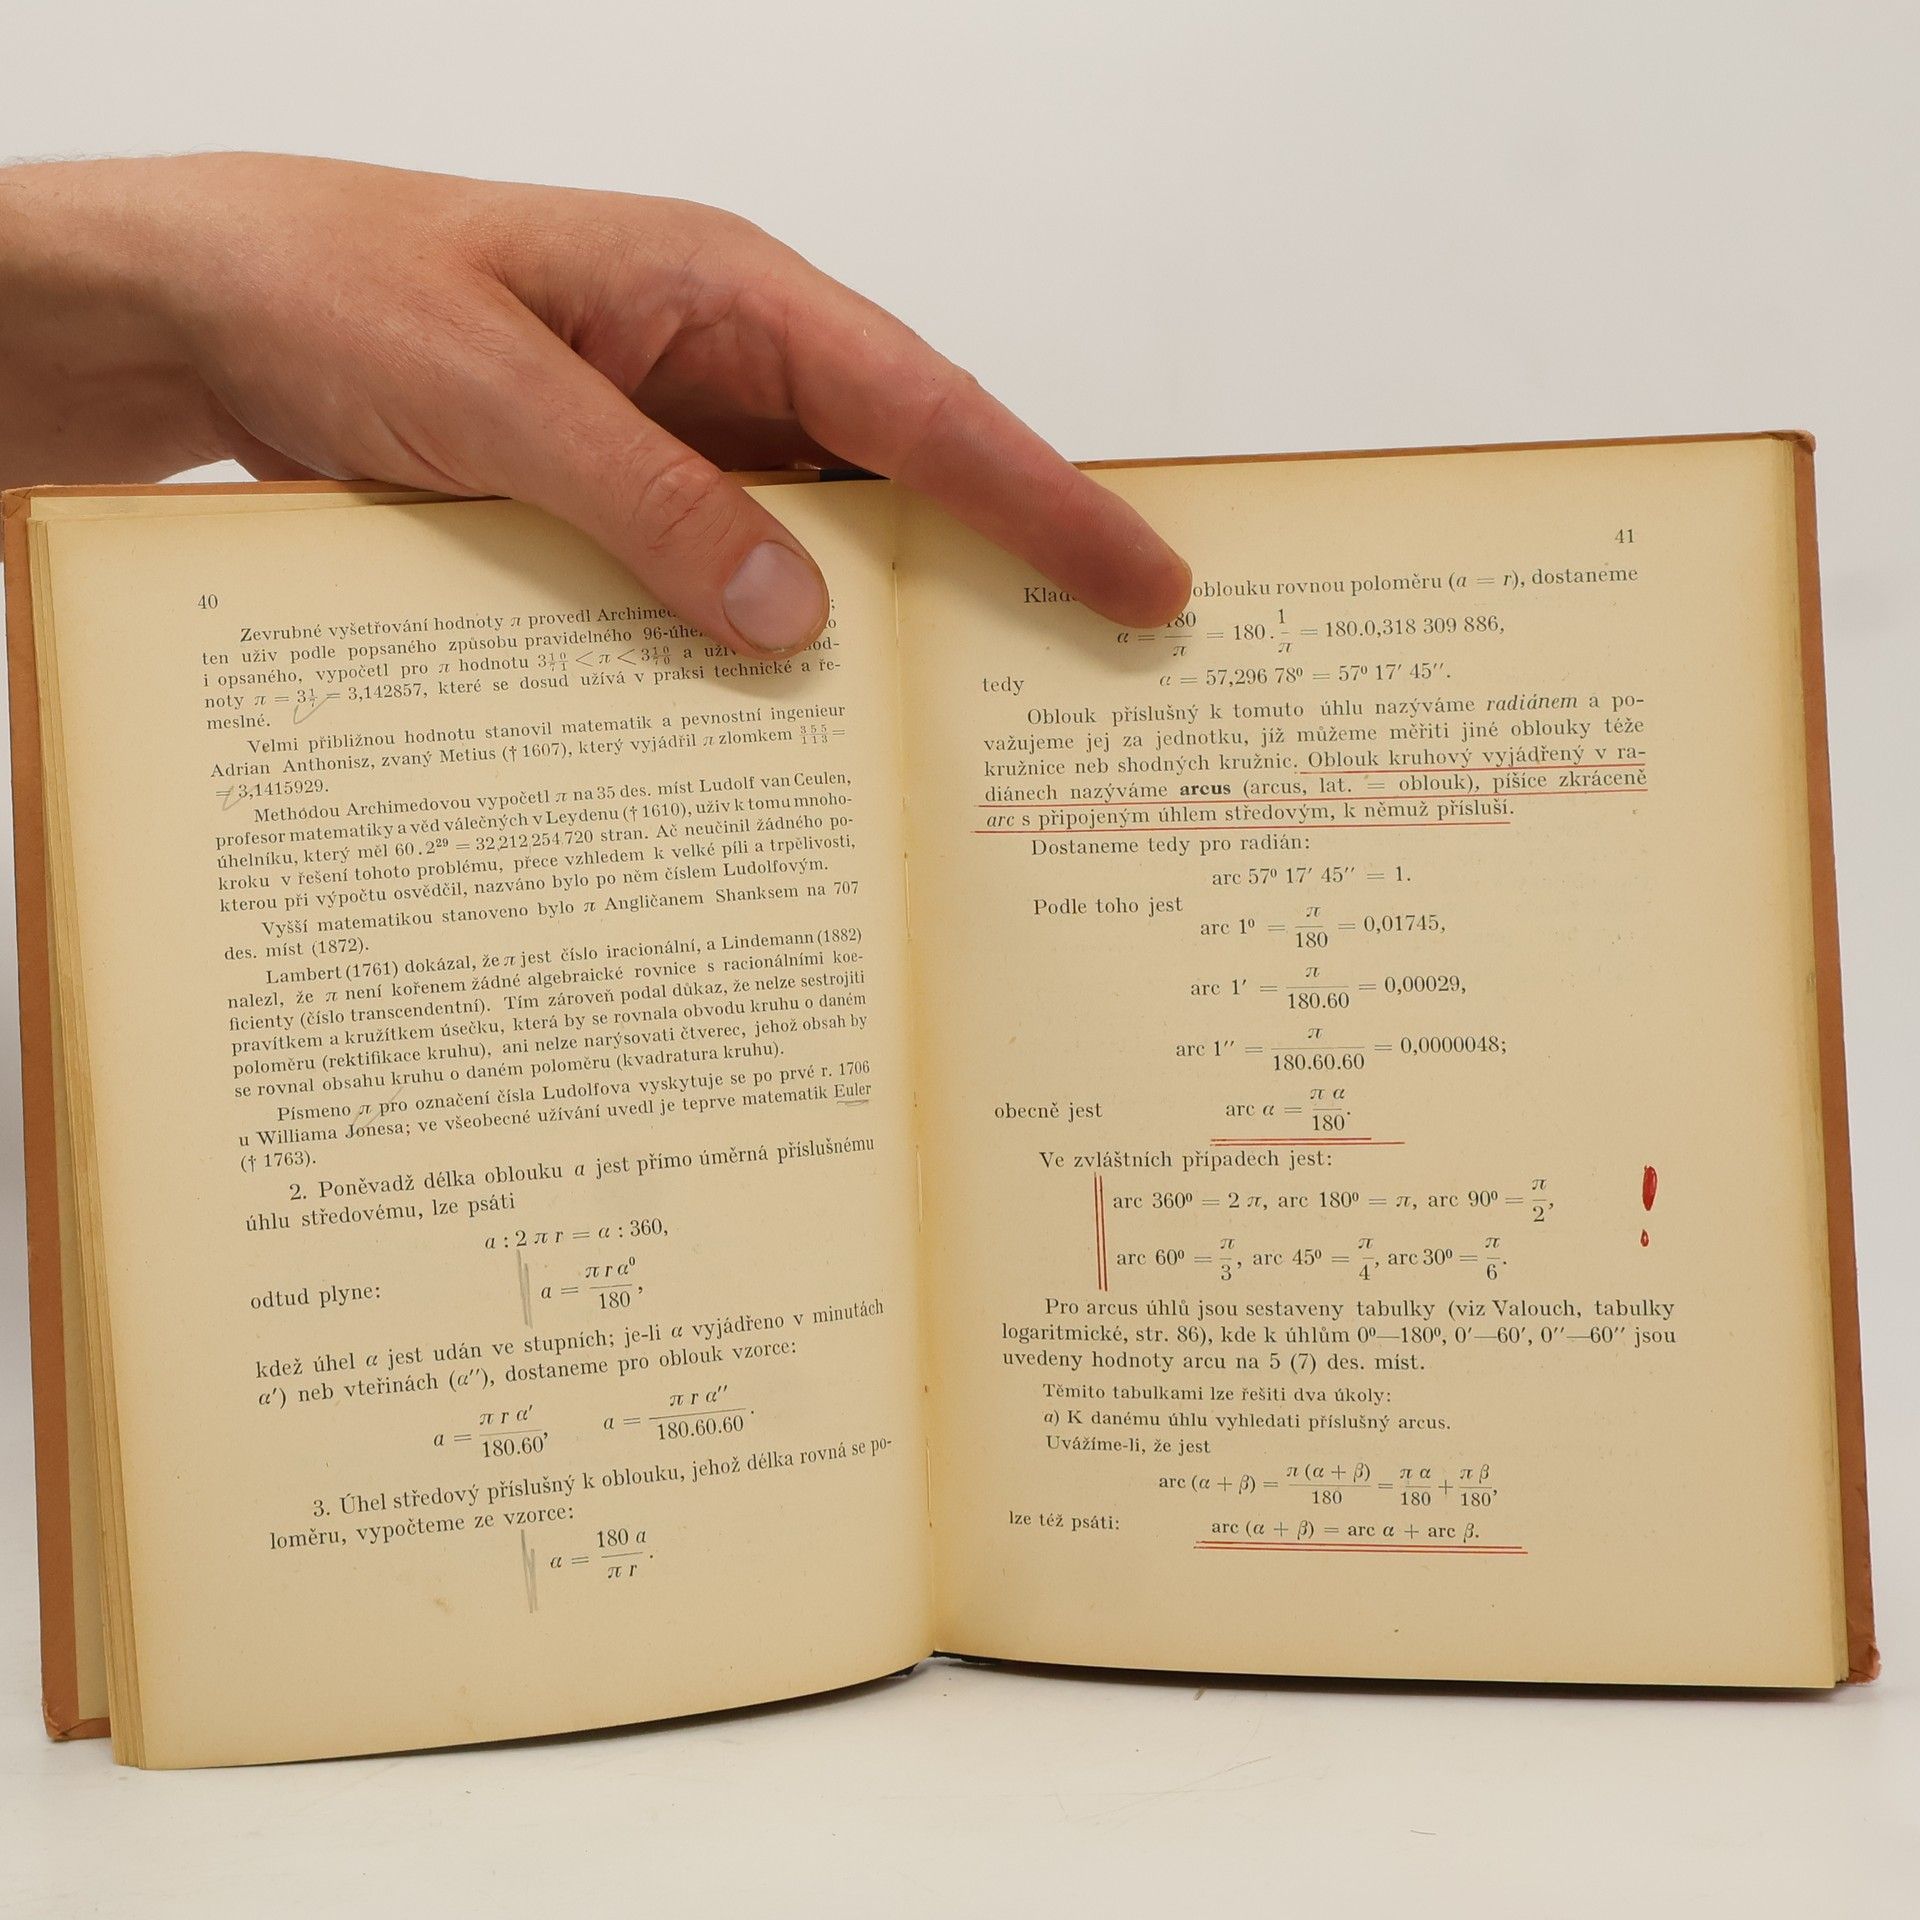 40
Zevrubné vyšetřování hodnoty π provedl
ten uživ podle popsaného způsobu pravidelného
i opsaného, vypočetl pro π hodnotu 3 10/71 < π < 3 10/70 a
noty π = 3 1/7 = 3,142857, které se dosud užívá v praksi technické a ře-
meslné.
Velmi přibližnou hodnotu stanovil matematik a pevnostní ingenieur
Adrian Anthonisz, zvaný Metius († 1607), který vyjádřil π zlomkem 355/113 =
= 3,1415929.
Methodou Archimedovou vypočetl π na 35 des. míst Ludolf van Ceulen,
profesor matematiky a věd válečných v Leydenu († 1610), uživ k tomu mnoho-
úhelníku, který měl 60 . 2²⁹ = 32,212,254,720 stran. Ač neučinil žádného po-
kroku v řešení tohoto problému, přece vzhledem k velké píli a trpělivosti,
kterou při výpočtu osvědčil, nazváno bylo po něm číslem Ludolfovým.
Vyšší matematikou stanoveno bylo π Angličanem Shanksem na 707
des. míst (1872).
Lambert (1761) dokázal, že π jest číslo iracionální, a Lindemann (1882)
nalezl, že π není kořenem žádné algebraické rovnice s racionálními koe-
ficienty (číslo transcendentní). Tím zároveň podal důkaz, že nelze sestrojiti
pravítkem a kružítkem úsečku, která by se rovnala obvodu kruhu o daném
poloměru (rektifikace kruhu), ani nelze narýsovati čtverec, jehož obsah by
se rovnal obsahu kruhu o daném poloměru (kvadratura kruhu).
Písmeno π pro označení čísla Ludolfova vyskytuje se po prvé r. 1706
u Williama Jonesa; ve všeobecné užívání uvedl je teprve matematik Euler
(† 1763).
2. Poněvadž délka oblouku a jest přímo úměrná příslušnému
úhlu středovému, lze psáti
a : 2 π r = α : 360,
odtud plyne: a = π r α⁰ / 180,
kdež úhel α jest udán ve stupních; je-li α vyjádřeno v minutách
α′) neb vteřinách (α″), dostaneme pro oblouk vzorce:
a = π r α′ / 180.60, a = π r α″ / 180.60.60.
3. Úhel středový příslušný k oblouku, jehož délka rovná se po-
loměru, vypočteme ze vzorce:
α = 180 a / π r.
41
oblouku rovnou poloměru (a = r), dostaneme
α = 180/π = 180 . 1/π = 180.0,318 309 886,
tedy α = 57,296 78⁰ = 57⁰ 17′ 45″.
Oblouk příslušný k tomuto úhlu nazýváme radiánem a po-
važujeme jej za jednotku, jíž můžeme měřiti jiné oblouky téže
kružnice neb shodných kružnic. Oblouk kruhový vyjádřený v ra-
diánech nazýváme arcus (arcus, lat. = oblouk), píšíce zkráceně
arc s připojeným úhlem středovým, k němuž přísluší.
Dostaneme tedy pro radián:
arc 57⁰ 17′ 45″ = 1.
Podle toho jest
arc 1⁰ = π/180 = 0,01745,
arc 1′ = π/180.60 = 0,00029,
arc 1″ = π/180.60.60 = 0,0000048;
obecně jest arc α = π α/180.
Ve zvláštních případech jest:
arc 360⁰ = 2 π, arc 180⁰ = π, arc 90⁰ = π/2,
arc 60⁰ = π/3, arc 45⁰ = π/4, arc 30⁰ = π/6.
!
Pro arcus úhlů jsou sestaveny tabulky (viz Valouch, tabulky
logaritmické, str. 86), kde k úhlům 0⁰—180⁰, 0′—60′, 0″—60″ jsou
uvedeny hodnoty arcu na 5 (7) des. míst.
Těmito tabulkami lze řešiti dva úkoly:
a) K danému úhlu vyhledati příslušný arcus.
Uvážíme-li, že jest
arc (α + β) = π (α + β)/180 = π α/180 + π β/180,
lze též psáti: arc (α + β) = arc α + arc β.